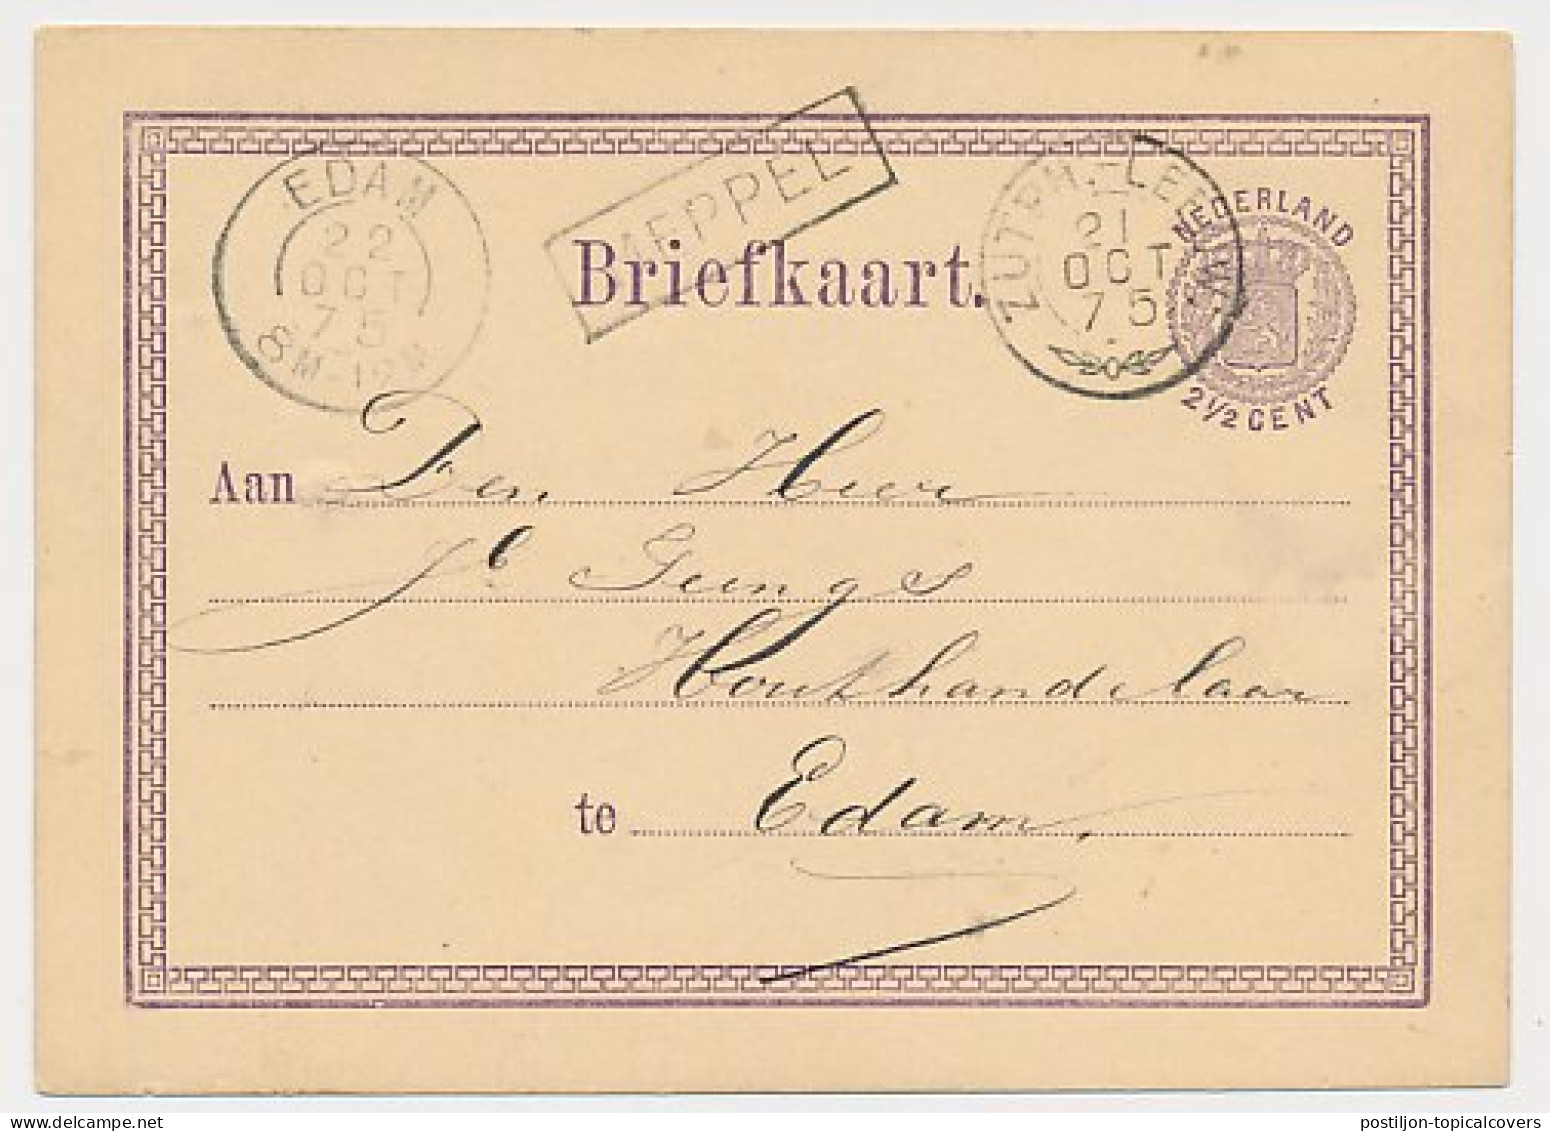 EDAM
22
OCT
75
8M-12M
MEPPEL
ZUTPH.-LEEUW:
21
OCT
75
NEDERLAND
2½ CENT
Briefkaart.
Aan Den Heer
Houthandelaar
te Edam,
postiljon-topicalcovers